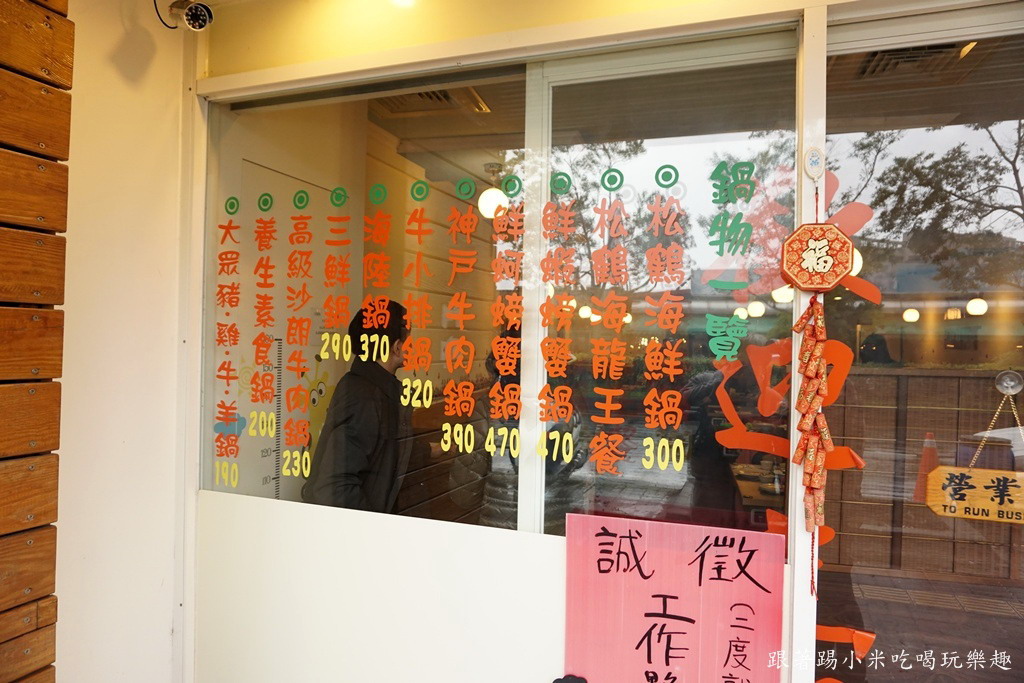 鍋物一覽
松鶴海鮮鍋300
松鶴海龍王餐
鮮蝦螃蟹鍋470
鮮蚵螃蟹鍋470
神戶牛肉鍋390
牛小排鍋320
海陸鍋370
三鮮鍋290
高級沙朗牛肉鍋230
養生素食鍋200
大眾豬·雞·牛·羊鍋190
福
迎
營業
TO RUN BUS
徵
誠
(二度
工作
跟著踢小米吃喝玩樂趣